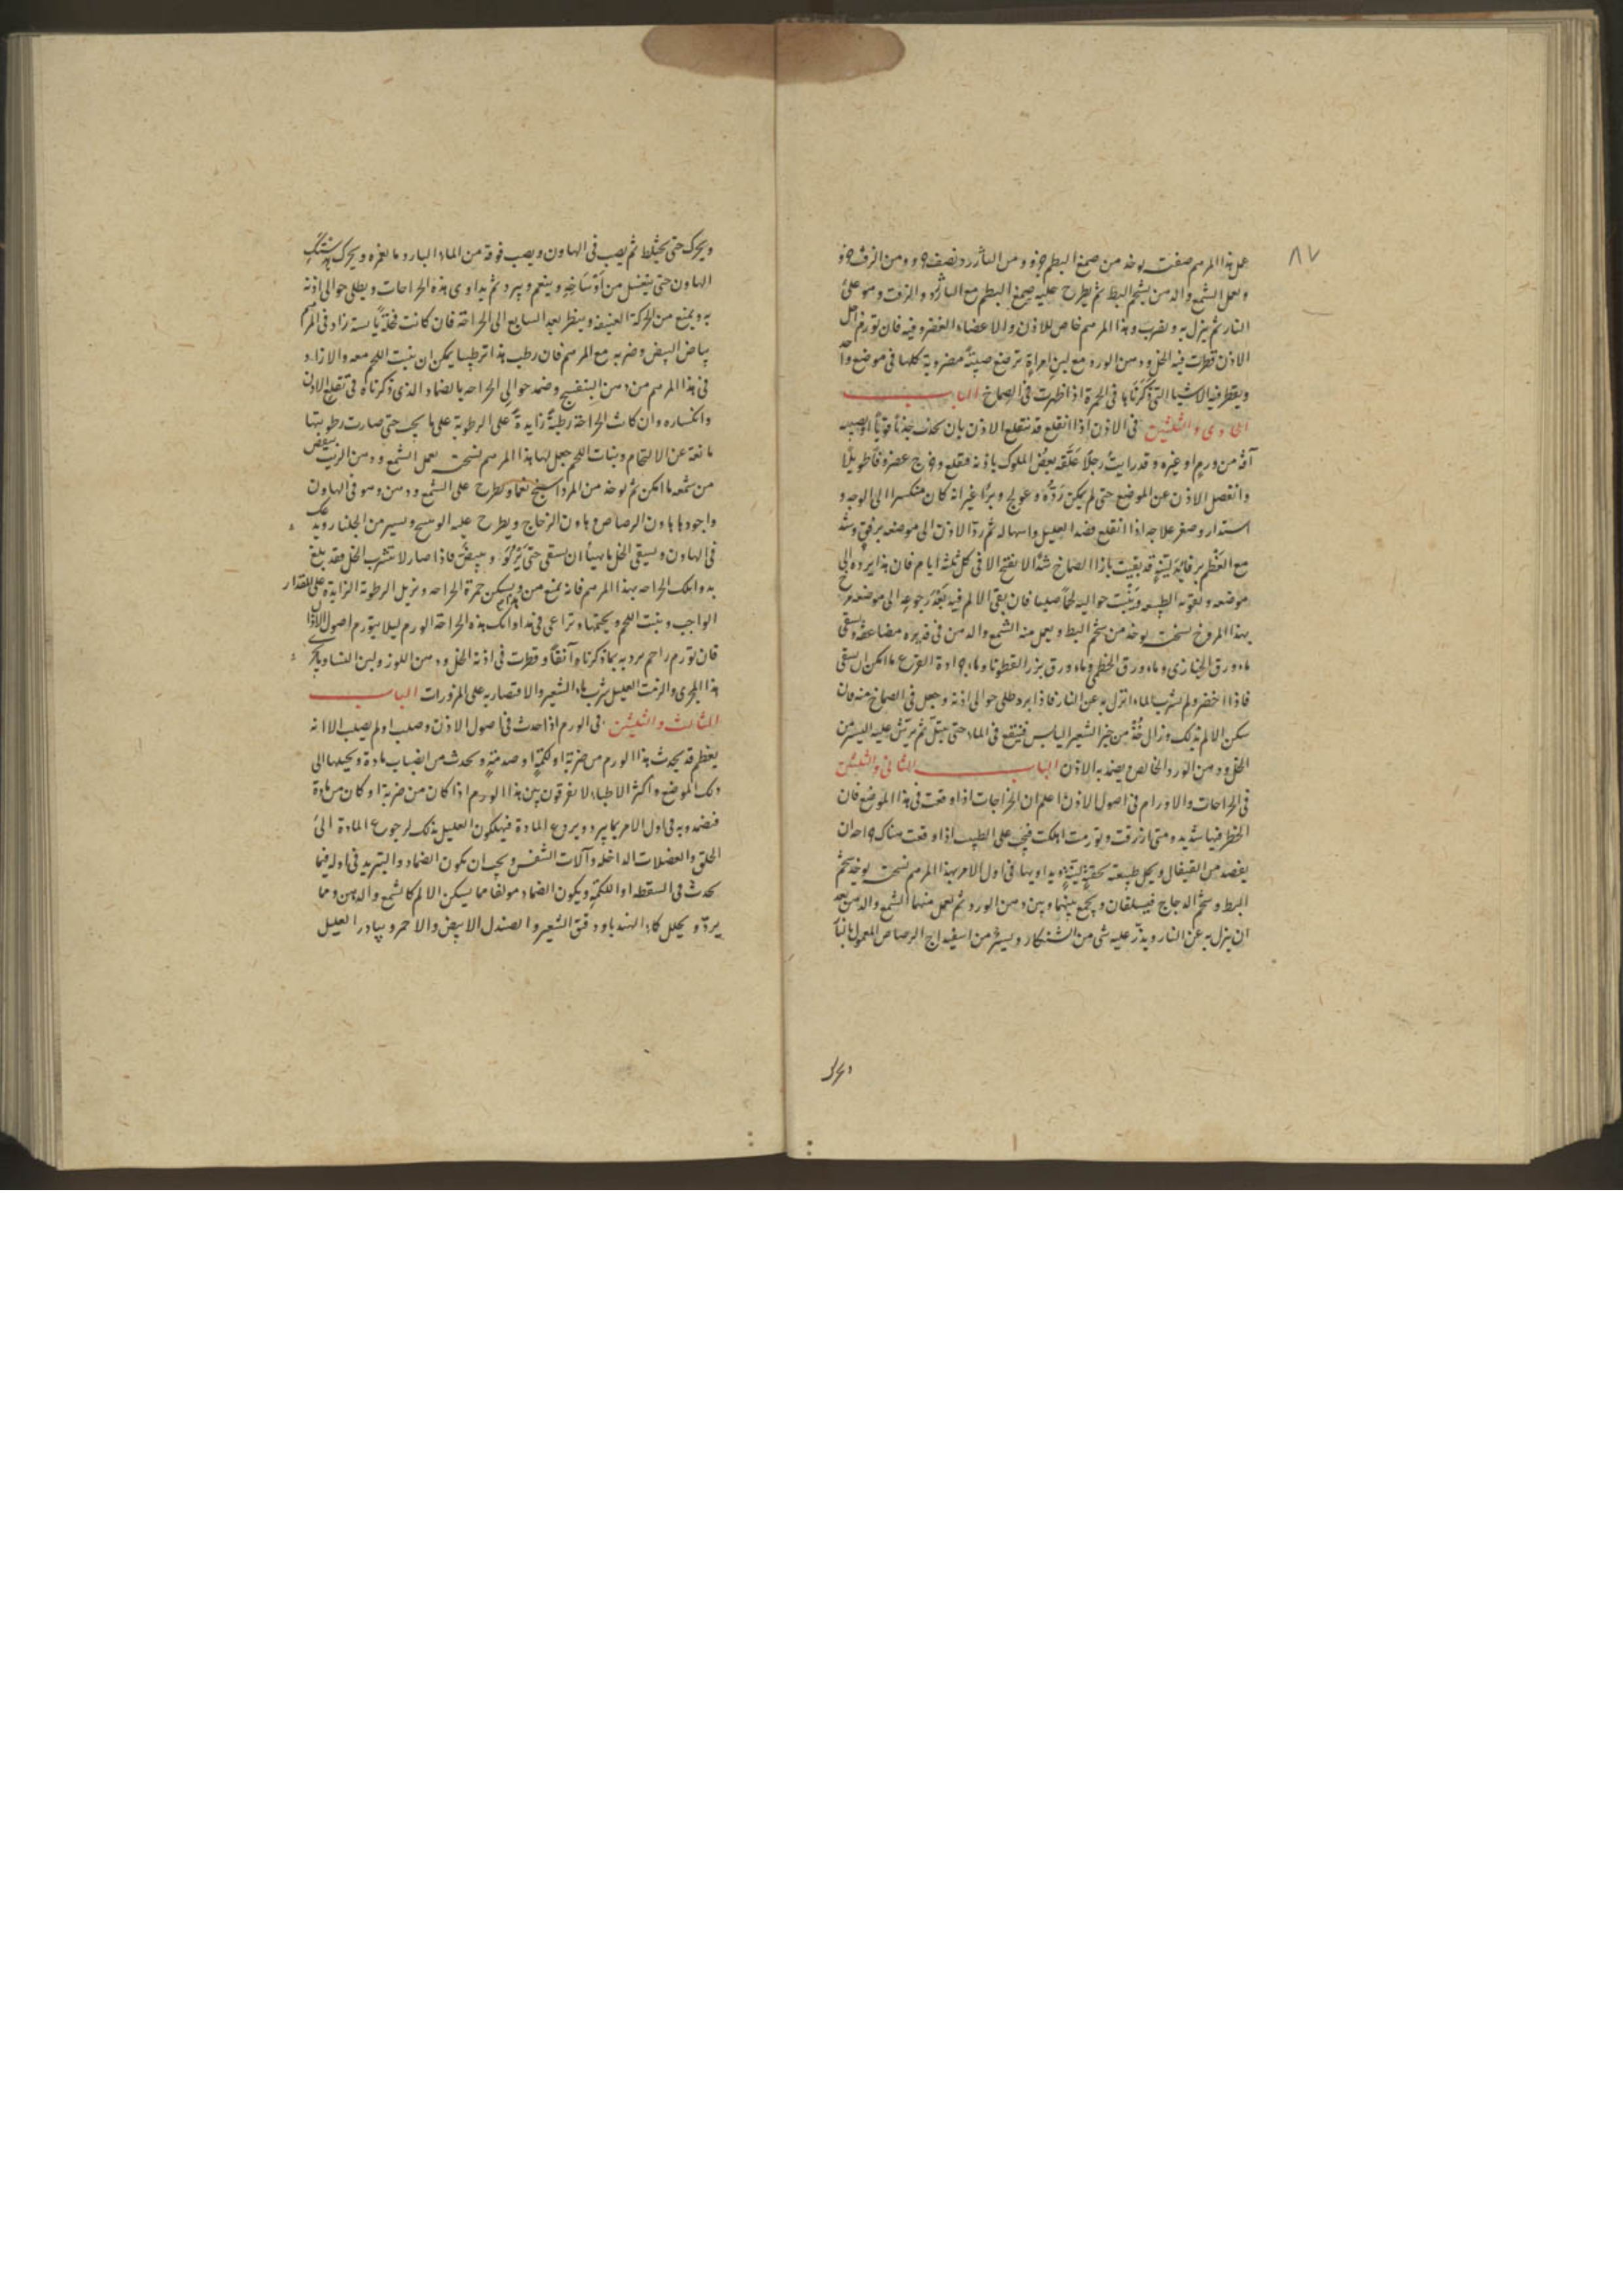 ٨٧
عمل هذا المرهم صفته يوخذ من صمغ البطم جزو ومن البارزد ونصف جزو ومن الزفت جزو
ويعمل الشمع والدهن بشحم البط ثم يطرح عليه صمغ البطم مع البارزد والزفت وهو على
النار ثم ينزل به ويضرب وهذا المرهم خاص للاذن والاعضاء الغضروفيه فان تورم اصل
الاذن قطرت فيه الخل ودهن الورد مع لبن امراة ترضع صبية مضروبة كلها فى موضع واحد
ويقطر فيه الاشيا التى ذكرناها فى الحمرة اذا ظهرت فى الصماخ الباب
الحادى والثلثين فى الاذن اذا انقلع قد تنقلع الاذن بان تجذب جذبا قويا او يصيبه
آفة من ورم او غيره وقد رايت رجلا علقه بعض الملوك باذنه فقلع وخرج عصره فاطويلا
وانفصل الاذن عن الموضع حتى لم يكن رده وعولج وبرا غير انه كان منكسرا الى الوجه و
استدار وصغر علاجه اذا انقلع فصد العليل واسهاله ثم رد الاذن الى موضعه برفق وشد
مع العظم برفايد لينة قد بقيت بازا الصماخ شدا لا يفتح الا فى كل ثلثة ايام فان هذا يرده الى
موضعه وتقويه الطبيعه وينبت حواليه لحما صلبا فان بقى الالم فيه بعد رجوعه الى موضعه مرخ
بهذا المروخ نسخته يوخذ من شحم البط ويعمل منه الشمع والدهن فى قديره مضاعفة ويسقى
ماء ورق الخبازى وماء ورق الخطمى وماء ورق بزر القطونا وماء جرادة القرع ما امكن ان يسقى
فاذا اخضر ولم يشرب الماء انزل به عن النار فاذا برد طلى حوالى اذنه وجعل فى الصماخ منه فان
سكن الالم بذلك وزال خذ من خبز الشعير اليابس فينقع فى الماء حتى يبتل ثم يرش عليه اليسير من
الخل ودهن الورد الخالص ويضمد به الاذن الباب الثانى والثلثين
فى الجراحات والاورام فى اصول الاذن اعلم ان الجراحات اذا وقعت فى هذا الموضع فان
الخطر فيها شديد ومتى نزفت وتورمت اهلكت فيجب على الطبيب اذا وقعت هناك جراحة ان
يفصد من القيفال ويحل طبيعته بحقنة لينة ويداويها فى اول الامر بهذا المرهم نسخته يوخذ شحم
البط وشحم الدجاج فيسلقان ويجمع بينهما وبين دهن الورد ثم تعمل منهما الشمع والدهن بعد
ان ينزل به عن النار ويذر عليه شى من الشنكار ويسير من اسفيداج الرصاص المعمول بالنار
ويحرك
ويحرك حتى يختلط ثم يصب فى الهاون ويصب فوقه من الماء البارد ما يغمره ويحرك بدستك
الهاون حتى يتغسل من اوساخه وينعم ويبرد ثم يداوى هذه الجراحات ويطلى حوالى اذنه
به ويمنع من الحركة العنيفه وينظر بعد السابع الى الجراحة فان كانت قحلة يابسة زاد فى المرهم
بياض البيض وضربه مع المرهم فان رطب هذا ترطيبا يمكن ان ينبت اللحم معه والا زاد
فى هذا المرهم من دهن البنفسج وضمد حوالى الجراحه بالضماد الذى ذكرناه فى تقلع الاذن
وانكساره وان كانت الجراحة رطبة زايدة على الرطوبة على ما يجب حتى صارت رطوبتها
مانعة عن الالتحام ونبات اللحم جعل لها هذا المرهم نسخته يعمل الشمع ودهن الزيت ببعض
من شمعه ما امكن ثم يوخذ من المرداسنج نعما ويطرح على الشمع ودهن وهو فى الهاون
واجودها هاون الرصاص وهاون الزجاج ويطرح عليه الوسخ ويسير من الجلنار ويدعك
فى الهاون ويسقى الخل ما تهيأ ان يسقى حتى يربو ويبيض فاذا صار لا يتشرب الخل فقد بلغ
يداوى تلك الجراحه بهذا المرهم فانه يمنع من ويسكن حمرة الجراحه ويزيل الرطوبة الزايدة على المقدار
الواجب وينبت اللحم ويختمها وتراعى فى مداواتك هذه الجراحة الورم ليلا يتورم اصول الاذن
فان تورم راحم برد به بما ذكرناه آنفا وقطرت فى اذنه الخل ودهن اللوز ولبن النساء يا كر
هذا المجرى والزمت العليل شرب ماء الشعير والاقتصار به على المزورات الباب
الثالث والثلثين فى الورم اذا حدث فى اصول الاذن وصلب او لم يصلب الا انه
يعظم قد يحدث هذا الورم من ضربة او لكمة او صدمة ويحدث من انصباب مادة ويحيلها الى
ذلك الموضع واكثر الاطباء لا يفرقون بين هذا الورم اذا كان من ضربة او كان من مادة
فيضمدونه فى اول الامر بما يبرد ويردع المادة فيهلكون العليل بذلك لرجوع المادة الى
الحلق والعضلات الداخله وآلات التنفس ويجب ان يكون الضماد والتبريد فى اوله فيما
يحدث فى السقطه او اللكمة ويكون الضماد مولفا مما يسكن الالم كالشمع والدهن ومما
يبرد ويحلل كماء الهندباء ودقيق الشعير والصندل الابيض والاحمر ويبادر العليل